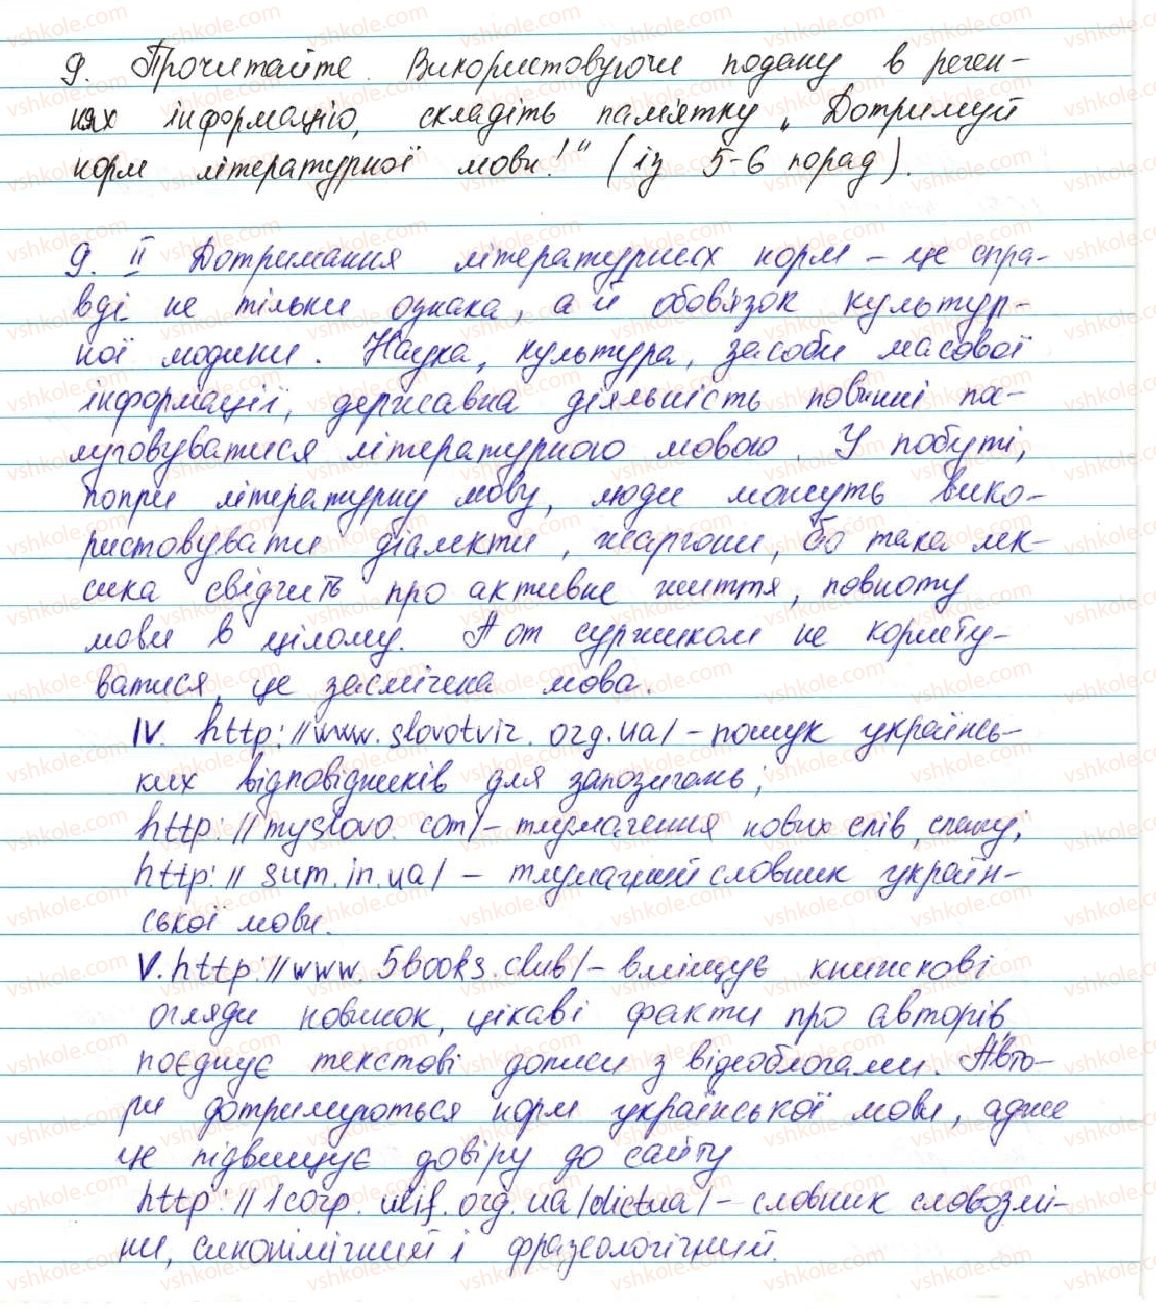 9. Прочитайте. Використовуючи подану в речен-
нях інформацію, складіть пам'ятку „Дотримуй
норм літературної мови!" (із 5-6 порад).
9. II Дотримання літературних норм – це спра-
вді не тільки ознака, а й обов'язок культур-
ної людини. Наука, культура, засоби масової
інформації, державна діяльність повинні по-
слуговуватися літературною мовою. У побуті,
попри літературну мову, люди можуть вико-
ристовувати діалекти, жаргони, бо така лек-
сика свідчить про активне життя, повноту
мови в цілому. А от суржиком не користу-
ватися, це засмічена мова.
IV. http://www.slovotvir.org.ua/ – пошук українсь-
ких відповідників для запозичень;
http://myslovo.com/ – тлумачення нових слів, сленгу;
http://sum.in.ua/ – тлумачний словник україн-
ської мови.
V. http://www.5books.club/ – вміщує книжкові
огляди новинок, цікаві факти про авторів,
поєднує текстові дописи з відеоблогами. Авто-
ри дотримуються норм української мови, адже
це підвищує довіру до сайту
http://lcorp.ulif.org.ua/dictua/ – словник словозмі-
ни, синонімічний і фразеологічний.